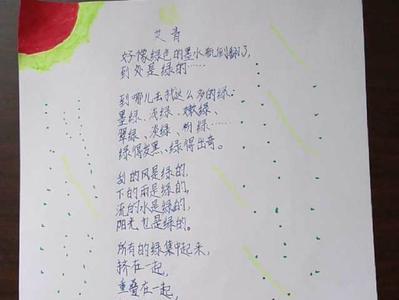 艾青
好像绿色的墨水瓶倒翻了,
到处是绿的……
到哪儿去找这么多的绿:
墨绿、浅绿、嫩绿、
翠绿、淡绿、粉绿……
绿得发黑、绿得出奇。
刮的风是绿的,
下的雨是绿的,
流的水是绿的,
阳光也是绿的。
所有的绿集中起来,
挤在一起,
重叠在一起,